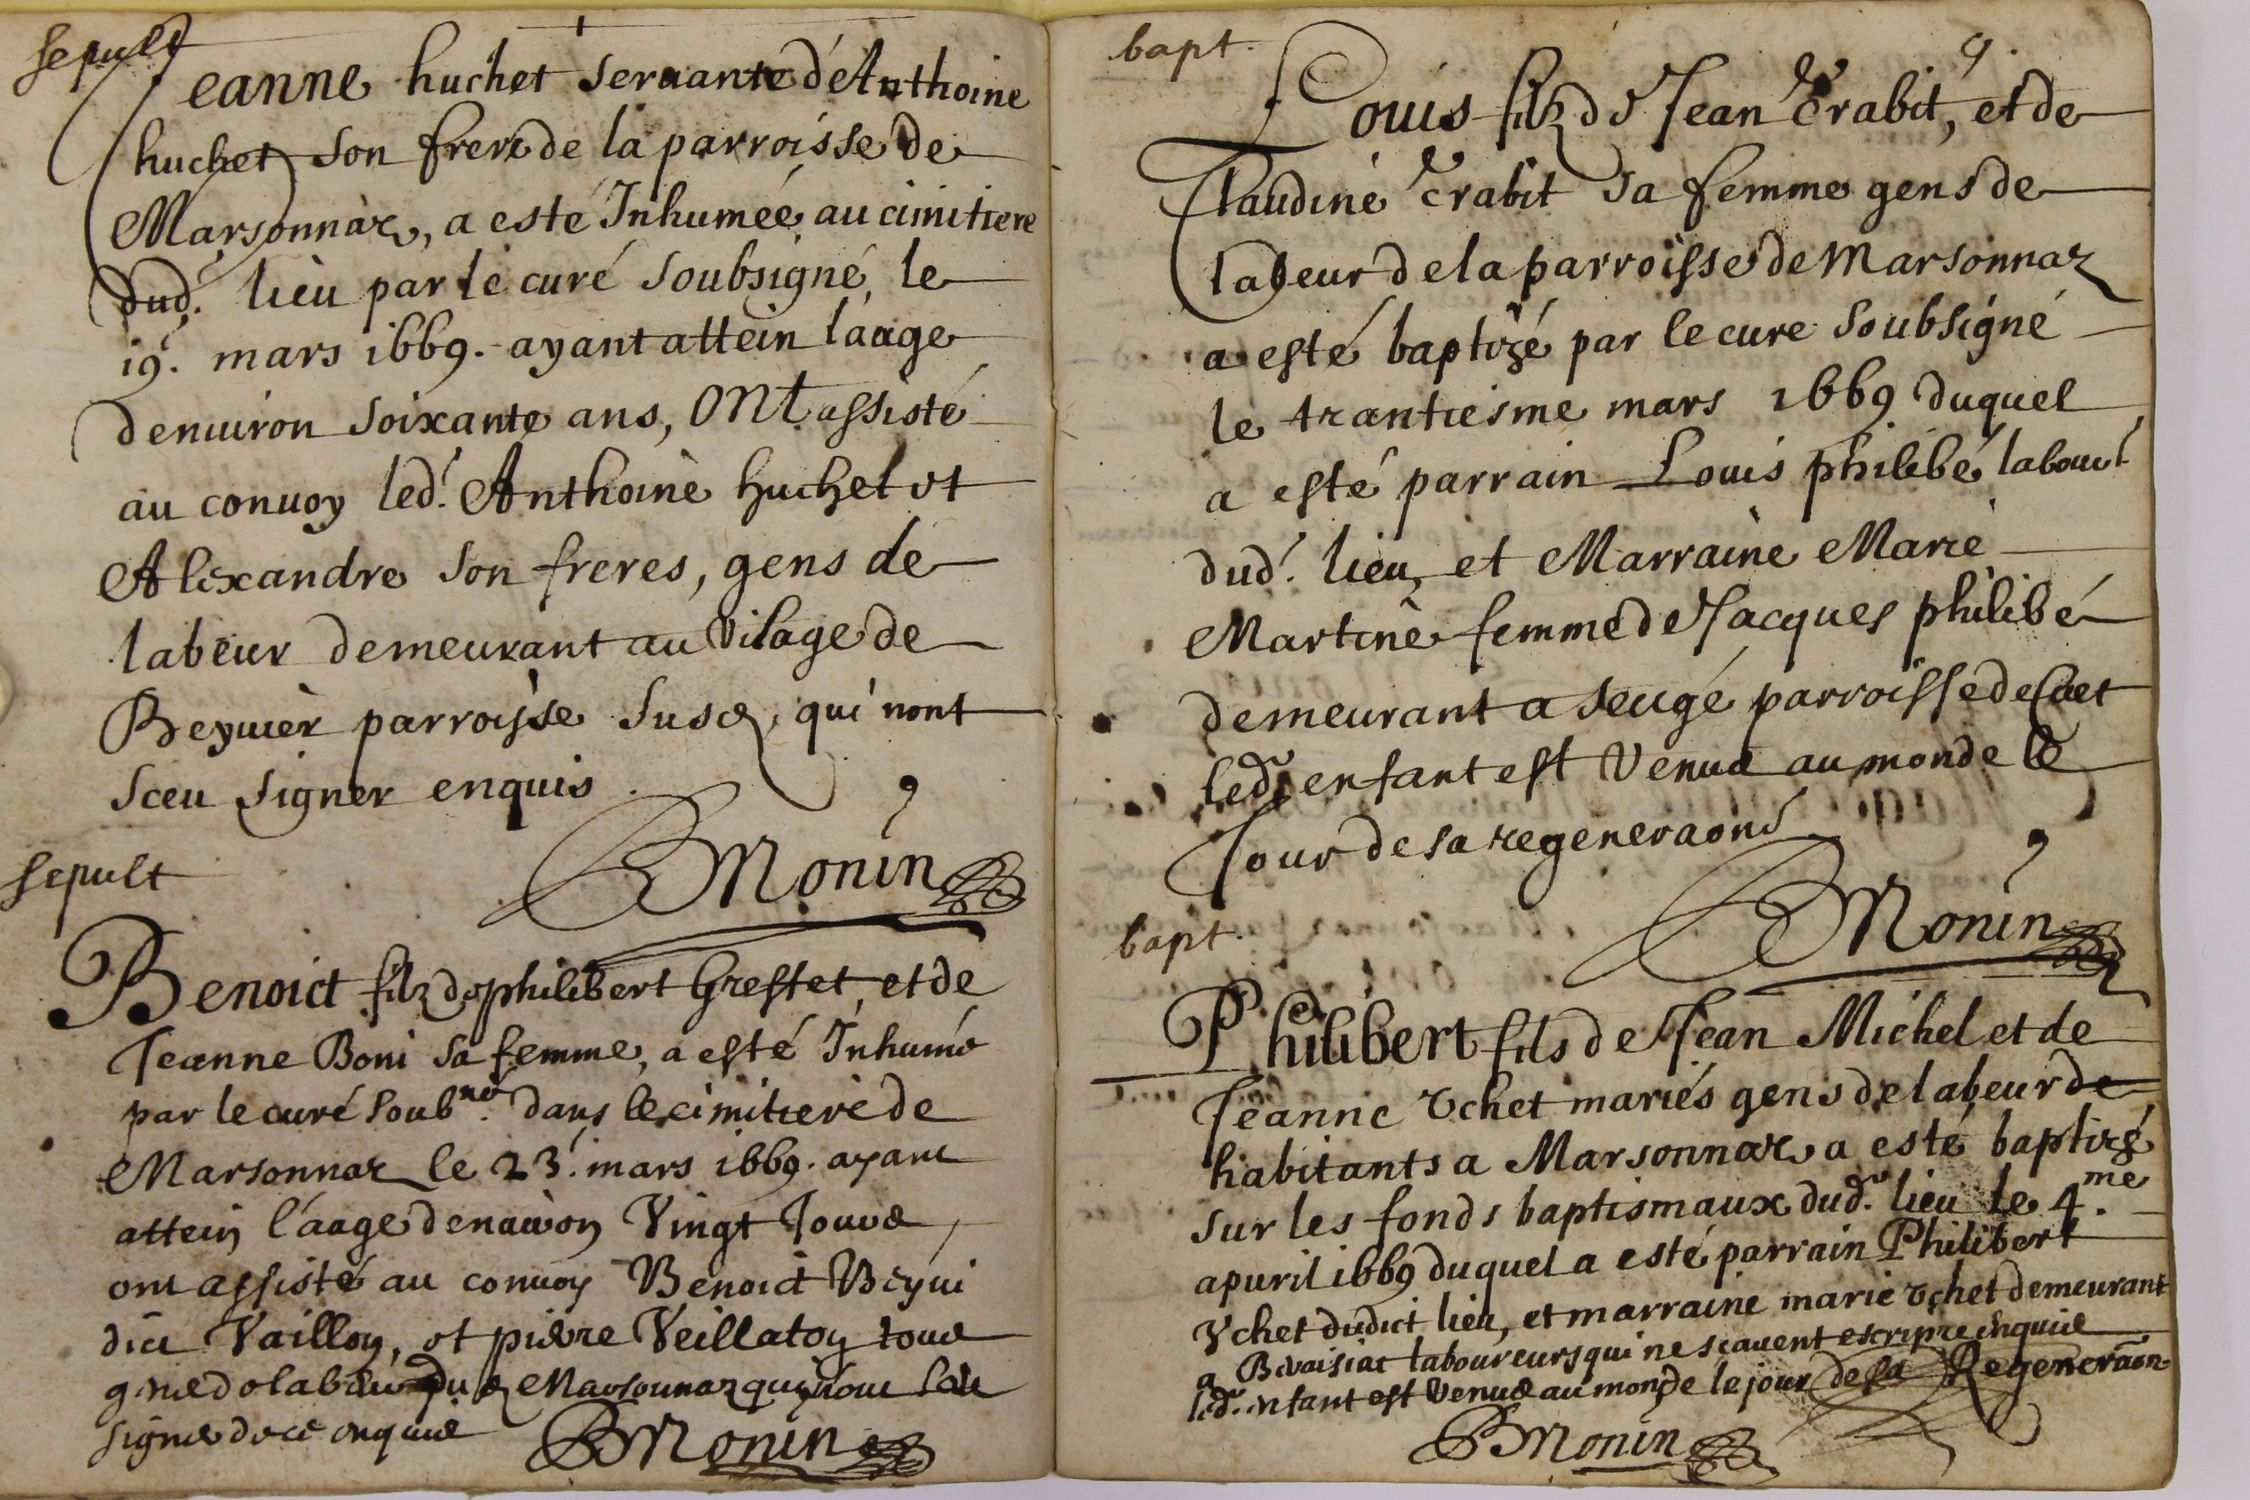 sepult
Jeanne huchet seruante d'Anthoine
huchet son frere de la parroisse de
Marsonnaz, a esté Inhumée au cimitiere
dud. lieu par le curé soubsigné, le
19. mars 1669. ayant attein laage
denuiron soixante ans, ONt assisté
au conuoy led. Anthoine huchet et
Alexandre son freres, gens de
labeur demeurant au vilage de
Beyuier parroisse susd, qui nont
sceu signer enquis.
BMonin
sepult
Benoict filz de philibert Grestet, et de
Jeanne Boni sa femme, a esté Inhumé
par le curé soubné. dans le cimitiere de
Marsonnaz le 23. mars 1669. ayant
attein l'aage denuiron Vingt Jours,
ont assisté au conuoy Benoict Beyui
dit Vaillon, et pierre Veillaton tous
gens de labeur dud Marsonnaz qui nont sceu
signer de ce enquis
BMonin
bapt.
9.
Louis filz de Jean Crabit, et de
Claudine Crabit sa femme gens de
labeur de la parroisse de Marsonnaz
a esté baptizé par le cure soubsigné
le trantiesme mars 1669 duquel
a esté parrain Louis philibé labour
dud. lieu, et Marraine Marie
Martine femme de Jacques philibé
demeurant a seugé parroisse de Cuet
led. enfant est venue au monde le
Jour de sa regeneraons
BMonin
bapt.
Philibert fils de Jean Michel et de
Jeanne Vchet mariés gens de labeur de
habitants a Marsonnaz a esté baptizé
sur les fonds baptismaux dud. lieu le 4.me
apuril 1669 duquel a esté parrain Philibert
Vchet dudict lieu, et marraine marie Vchet demeurant
a Biuaisiat laboureurs qui ne scauent escripre enquis
led. enfant est venue au monde le jour de sa Regeneraon
BMonin